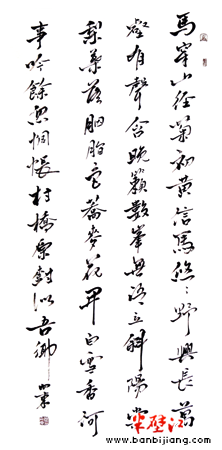 馬穿山徑菊初黃信馬悠〻野興長萬
壑有聲含晚籟數峯無語立斜陽棠
梨葉落胭脂色蕎麥花開白雪香何
事吟餘忽惆悵村橋原樹似吾鄉
半壁江
www.banbijiang.com